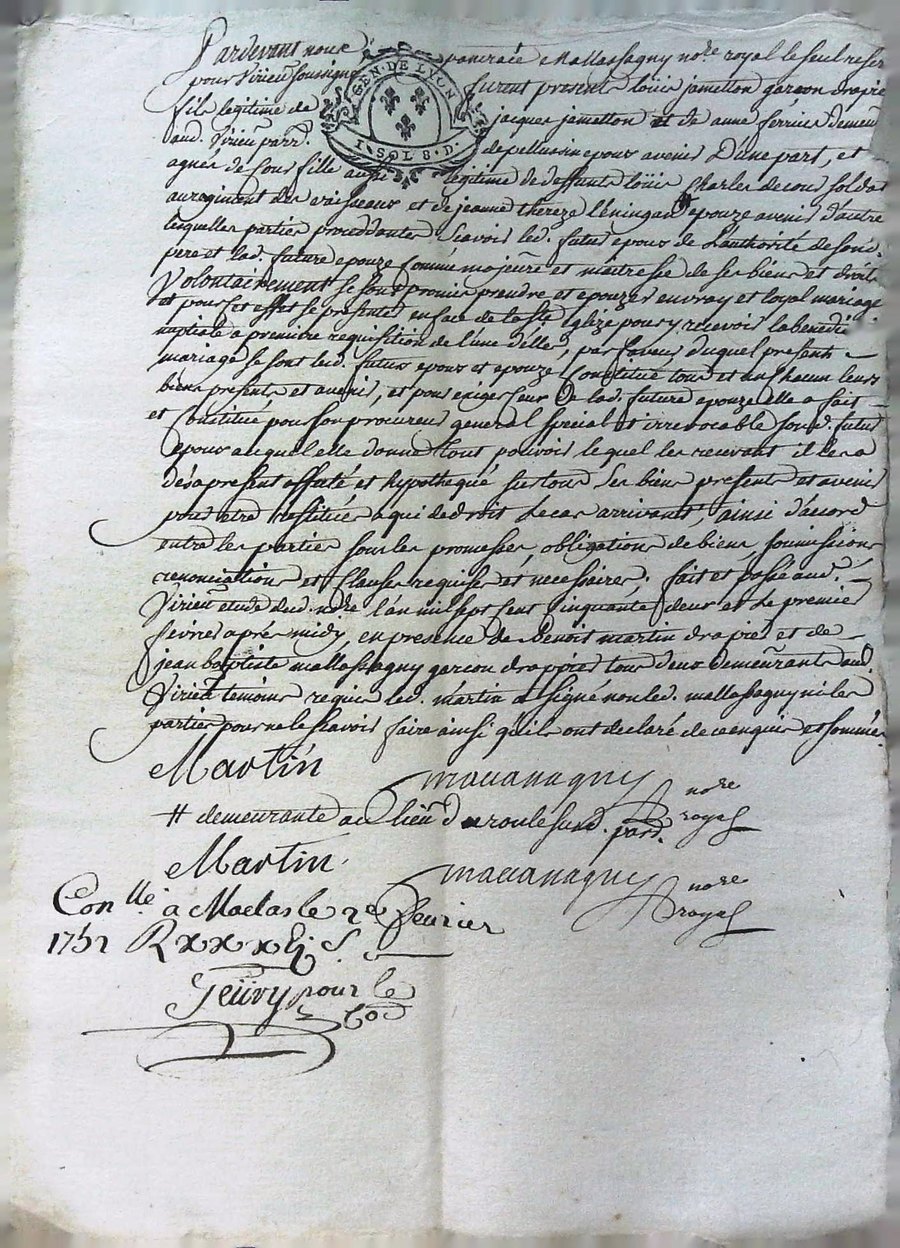 Pardevant nous pancrace Mallassagny no.re royal le seul reser
pour Virieu soussigné furent presents loüis jametton garcon drapie
GEN · DE LYON
I · SOL 8 · D ·
fils legitime de jacques jametton et de anne ferrier demeu
aud. Virieu parr. de pellussin epoux avenir D'une part, et
agnes de cour fille aussi legitime de deffunts loüis Charles decour soldat
au regiment des vaisseaux et de jeanne thereze # epouze avenir d'autre
lesquelles parties proceddantes Scavoir led. futur epoux de L'authorité de son d.
pere et lad. future epouze Comme majeure et maitresse de ses biens et droits
Volontairement se sont promis prendre et epouzer en vray et loyal mariage
et pour Cet effet se presenter en face de la Ste Eglize pour y recevoir la benedi
nuptiale a premiere requisition de l'une d'elles, par faveur duquel present
mariage se sont led. futurs epoux et epouze Constitué tous et un Chacun leurs
biens presents et avenir, et pour exiger Ceux de lad. future epouze elle a fait
et Constitué pour son procureur general special et irrevocable son d. futur
epoux auquel elle donne tout pouvoir lequel les recevant il les a
des a present affecté et hypothequé sur tous Ses biens presents et avenir
pour etre restitués a qui de droit Le cas arrivant, ainsi d'accord
entre les parties sous les promesses, obligations de biens, soumissions
renonciations et Clauses requises et necessaires, fait et passé aud.
Virieu etude dud. no.re l'an mil sept Cent Cinquante deux et Le premie
fevrier après midy, en presence de Benoit martin drapier et de
jean baptiste mallassagny garcon drappier tous deux demeurants aud.
Virieu temoins requis led. martin a signé non led. mallassagny ni les
parties pour ne le Scavoir faire ainsi qu'ils ont declaré de ce enquis et sommés
Martin mallassagny no.re royal
# demeurante au lieu de roule sud. parr.
Martin mallassagny no.re royal
Con.llé a Maclas le 2e fevrier
1752 R
Jeüvry pour le